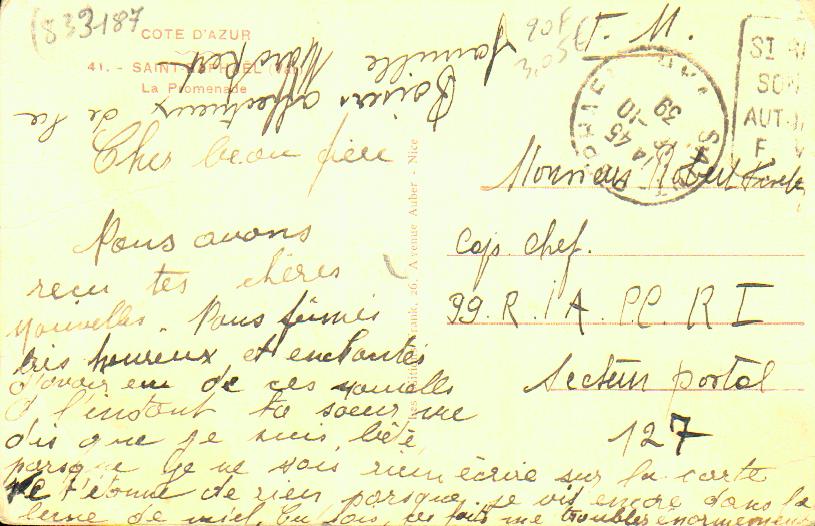 (833187
COTE D'AZUR
41. - SAINT-RAPHAËL (Var)
La Promenade
F. M.
Baisers affectueux de la
famille
Cher beau frère
Nous avons
reçu tes chères
nouvelles. Nous fûmes
très heureux et enchantés
d'avoir eu de ces nouvelles
A l'instant ta soeur me
dis que je suis bête
parsque je ne sais rien écrire sur la carte
Ne t'étonne de rien parsque je vis encore dans la
lune de miel. Tu sais, ces faits me troubles énormément
26, Avenue Auber - Nice
ST RA
SON
AUT
F
SAINT RAPHAEL
14 45
-10
39
Monsieur Robert
Cap. Chef.
99. R. I A. CC. R I
Secteur postal
127